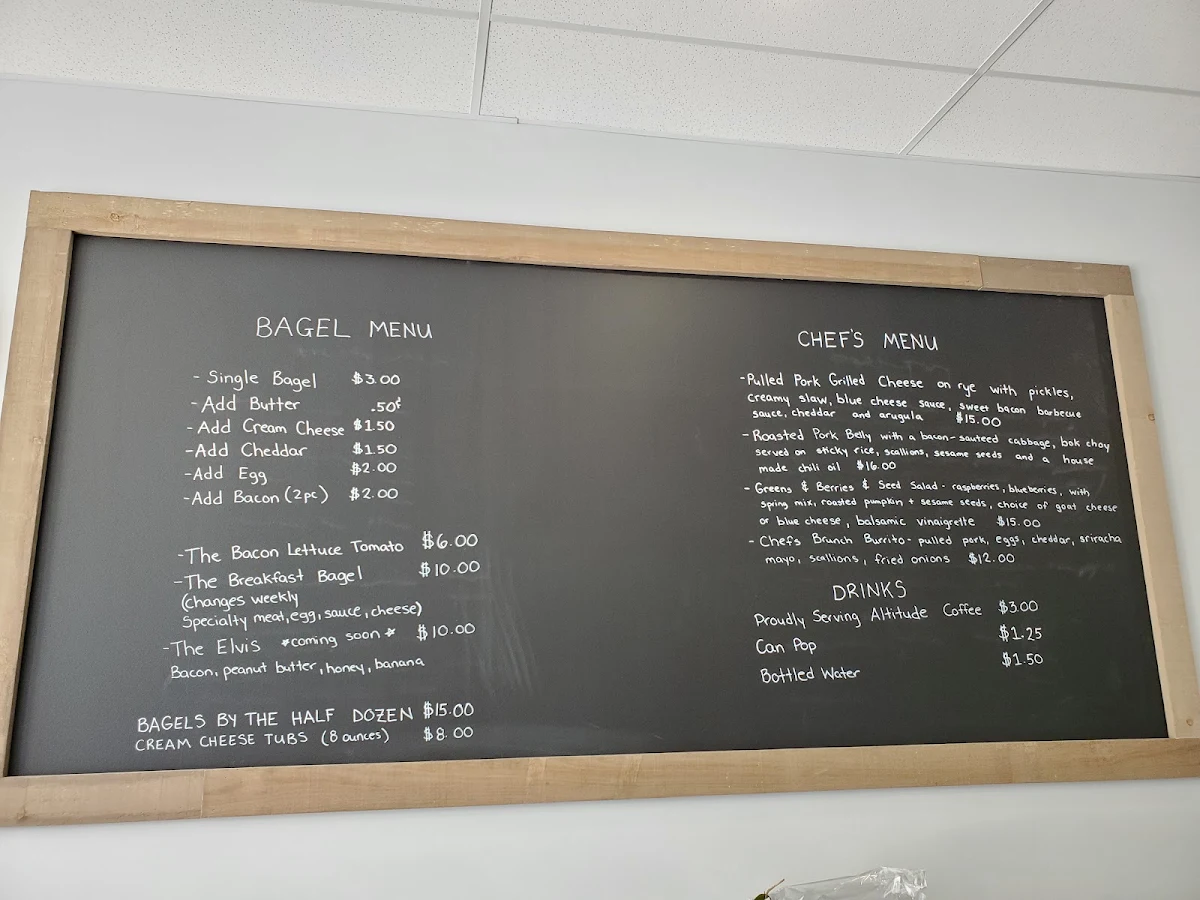 BAGEL MENU
- Single Bagel $3.00
- Add Butter .50¢
- Add Cream Cheese $1.50
- Add Cheddar $1.50
- Add Egg $2.00
- Add Bacon (2pc) $2.00
- The Bacon Lettuce Tomato $6.00
- The Breakfast Bagel $10.00
(changes weekly
Specialty meat, egg, sauce, cheese)
- The Elvis *coming soon* $10.00
Bacon, peanut butter, honey, banana
BAGELS BY THE HALF DOZEN $15.00
CREAM CHEESE TUBS (8 ounces) $8.00
CHEF'S MENU
- Pulled Pork Grilled Cheese on rye with pickles,
creamy slaw, blue cheese sauce, sweet bacon barbecue
sauce, cheddar and arugula $15.00
- Roasted Pork Belly with a bacon-sauteed cabbage, bok choy
served on sticky rice, scallions, sesame seeds and a house
made chili oil $16.00
- Greens & Berries & Seed Salad - raspberries, blueberries, with
spring mix, roasted pumpkin + sesame seeds, choice of goat cheese
or blue cheese, balsamic vinaigrette $15.00
- Chefs Brunch Burrito - pulled pork, eggs, cheddar, sriracha
mayo, scallions, fried onions $12.00
DRINKS
Proudly Serving Altitude Coffee $3.00
Can Pop $1.25
Bottled Water $1.50